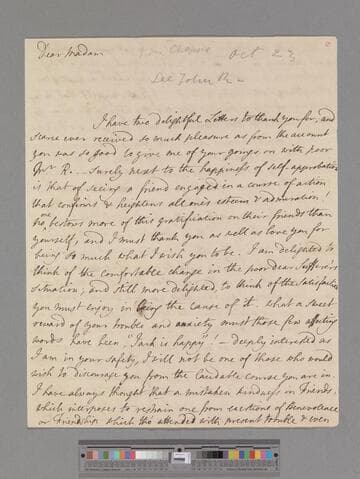 Dear Madam
from Chapone
Oct 23
See John R
I have two delightful Letters to thank you for, and
scarce ever received so much pleasure as from the account
you was so good to give me of your goings on with poor
Mr R. — Surely next to the happiness of self-approbation
is that of seeing a friend engaged in a course of action
that confirms & heightens all one's esteem & admiration!
no one bestows more of this gratification on their friends than
yourself, and I must thank you as well as love you for
being so much what I wish you to be. I am delighted to
think of the comfortable change in the poor dear Sufferer's
situation, and still more delighted to think of the satisfaction
you must enjoy in being the cause of it. What a sweet
reward of your trouble and anxiety must those few affecting
words have been, "Jack is happy"! — Deeply interested as
I am in your safety, I will not be one of those who would
wish to discourage you from the laudable course you are in.
I have always thought that a mistaken kindness in Friends,
which interposes to restrain one from exertions of Benevolence
or Friendship which tho' attended with present trouble & even